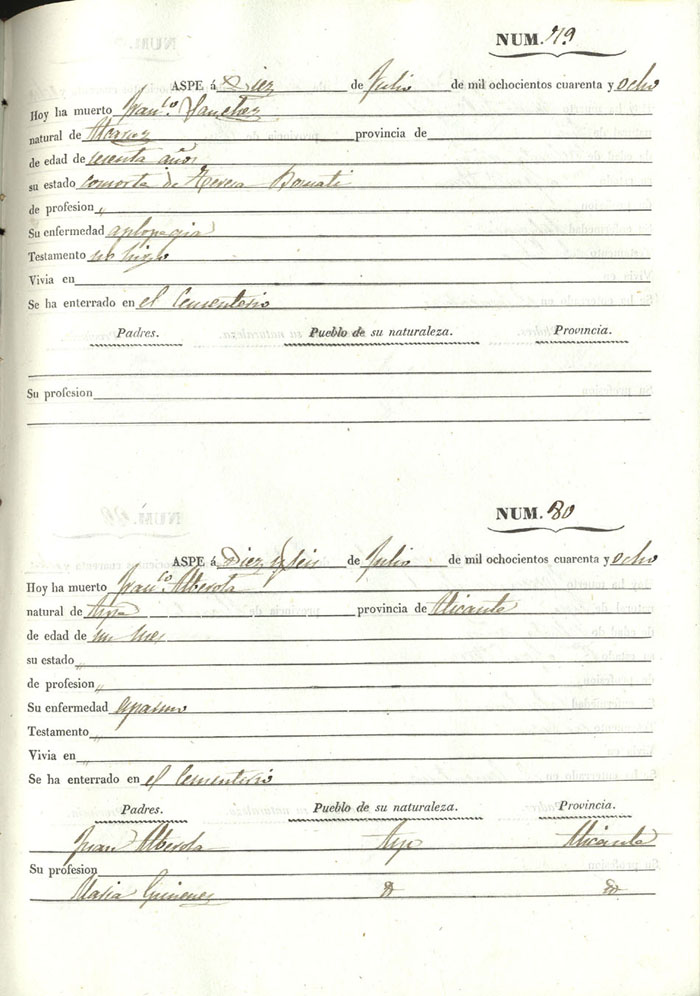 NUM. 79
ASPE á Diez de Julio de mil ochocientos cuarenta y ocho
Hoy ha muerto Fran.co Sanchez
natural de provincia de
de edad de años
su estado consorte de Teresa Bonati
de profesion „
Su enfermedad aplopegia
Testamento no hizo
Vivia en
Se ha enterrado en el Cementerio
Padres. Pueblo de su naturaleza. Provincia.
Su profesion
NUM. 80
ASPE á Diez y seis de Julio de mil ochocientos cuarenta y ocho
Hoy ha muerto Fran.co Alberola
natural de Aspe provincia de Alicante
de edad de un mes
su estado „
de profesion „
Su enfermedad espasmo
Testamento „
Vivia en „
Se ha enterrado en el Cementerio
Padres. Pueblo de su naturaleza. Provincia.
Juan Alberola Aspe Alicante
Su profesion
Maria Gimenez